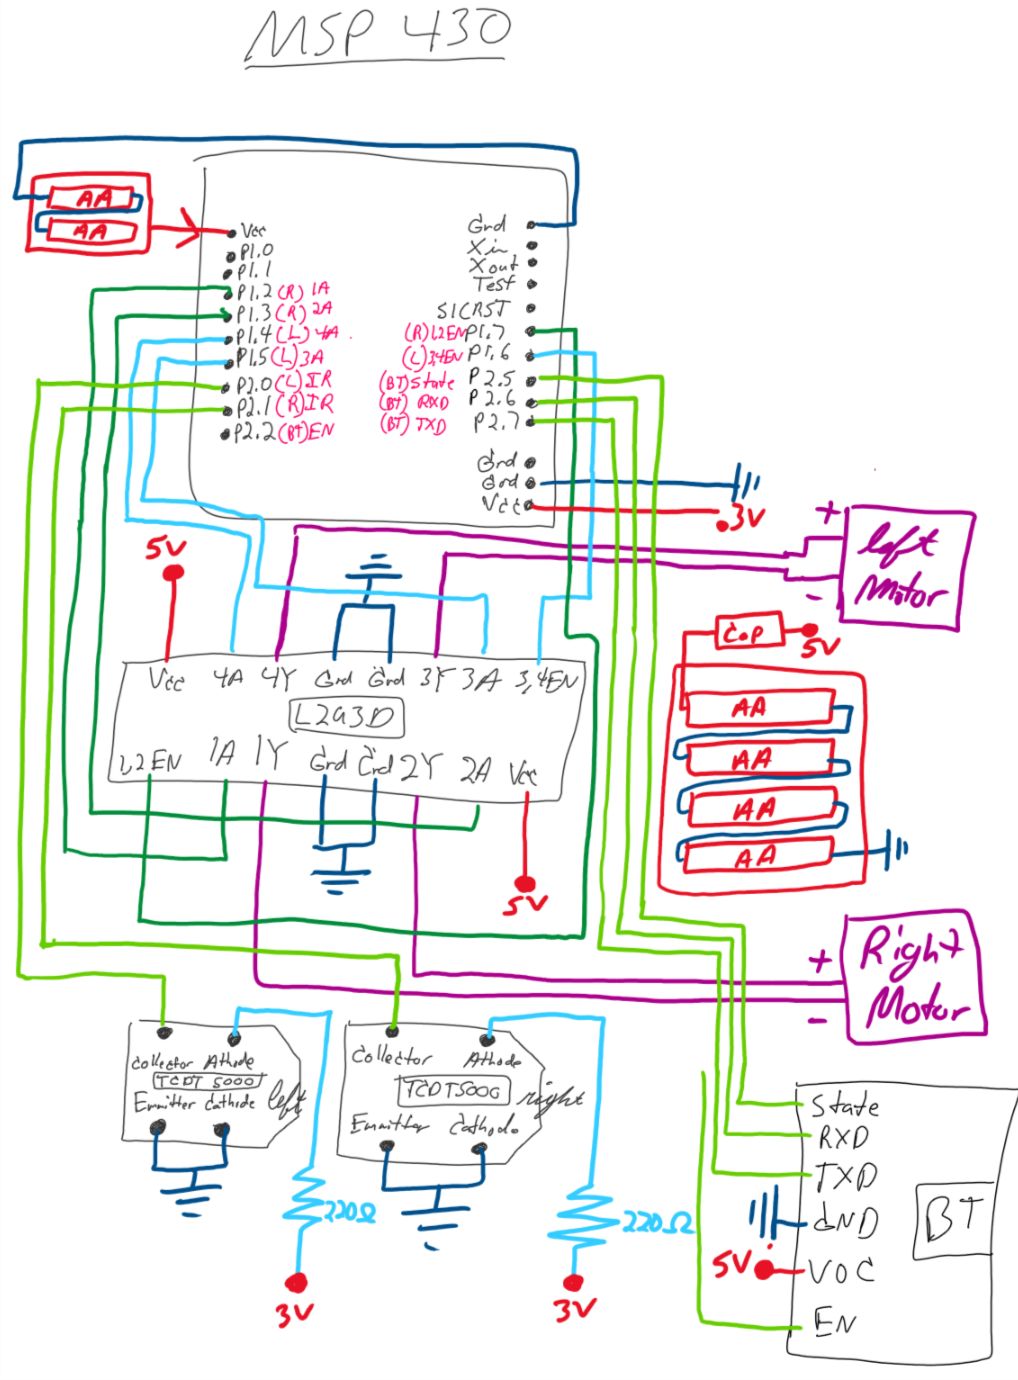 MSP 430
AA
AA
Vcc
P1.0
P1.1
P1.2 (R) 1A
P1.3 (R) 2A
P1.4 (L) 4A
P1.5 (L) 3A
P2.0 (L) IR
P2.1 (R) IR
P2.2 (BT) EN
Grd
Xin
Xout
Test
SICRST
(R) 1,2EN P1.7
(L) 3,4EN P1.6
(BT) State P2.5
(BT) RXD P2.6
(BT) TXD P2.7
Grd
Grd
Vcc
3V
+
left
Motor
-
5V
Cap
5V
AA
AA
AA
AA
Vcc 4A 4Y Grd Grd 3Y 3A 3,4EN
L293D
1,2 EN 1A 1Y Grd Grd 2Y 2A Vcc
5V
+
Right
Motor
-
Collector Athode
TCDT 5000
Emitter Cathode
left
220Ω
3V
Collector Athode
TCDT5000
right
Emitter Cathode
220Ω
3V
State
RXD
TXD
GND
5V
VOC
EN
BT